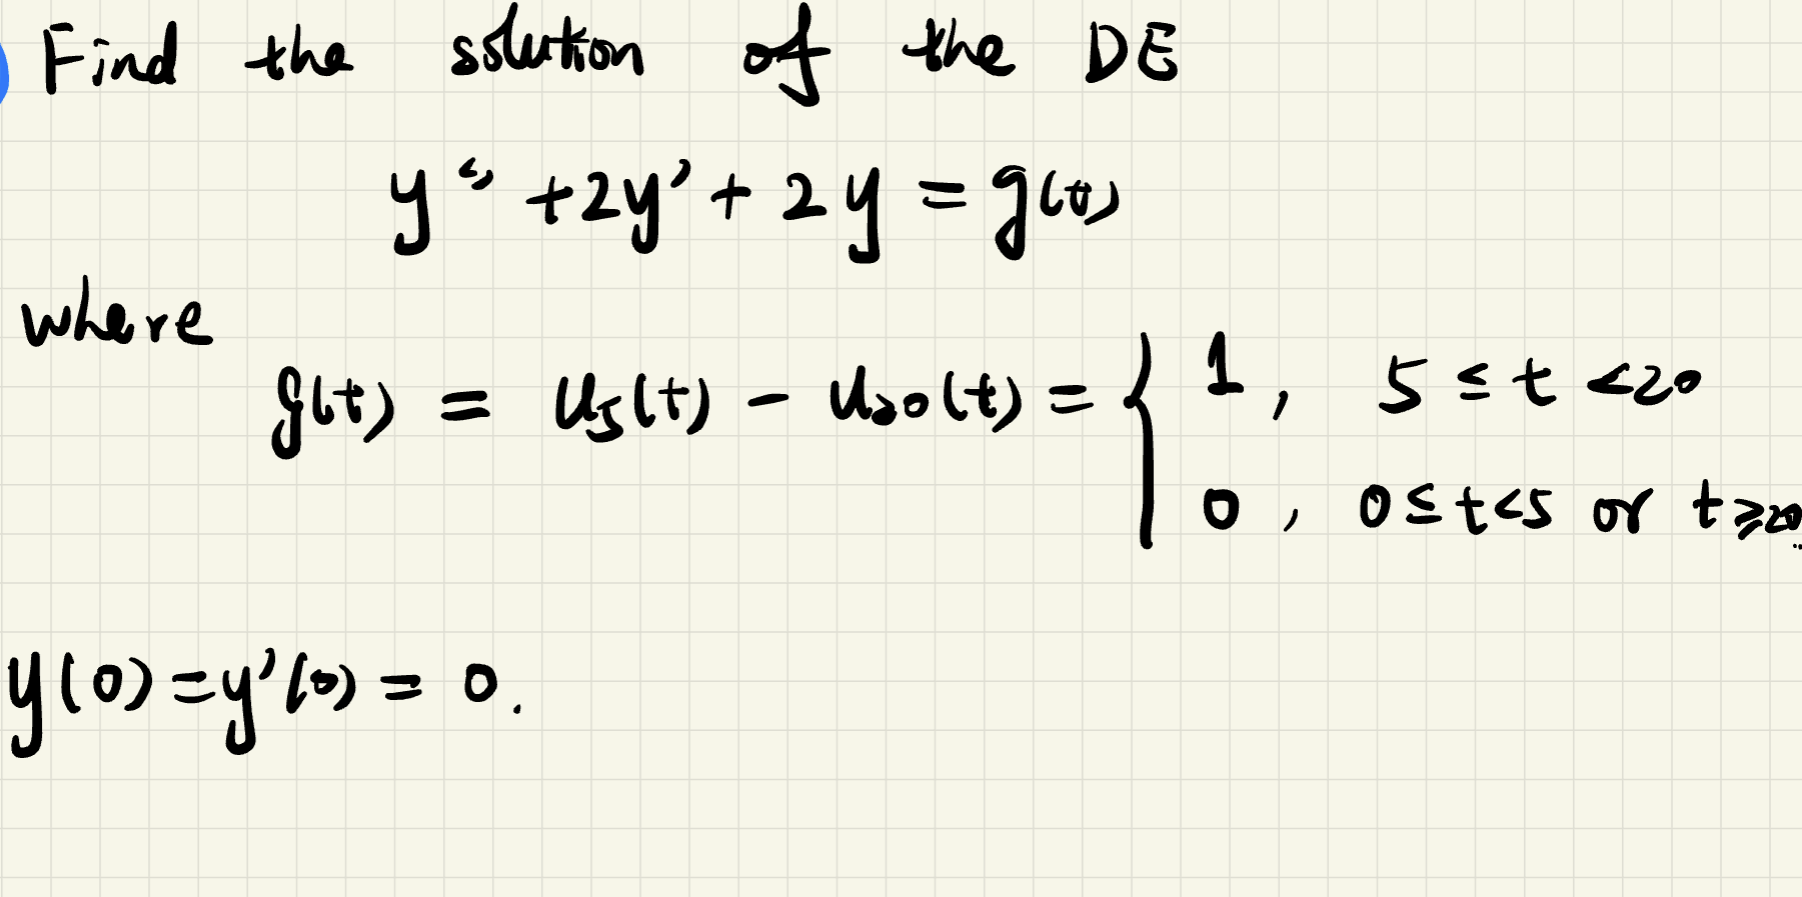 Find the solution of the DE
y'' + 2y' + 2y = g(t)
where
g(t) = u₅(t) - u₂₀(t) = { 1, 5 ≤ t < 20
0, 0 ≤ t < 5 or t ≥ 20
y(0) = y'(0) = 0.